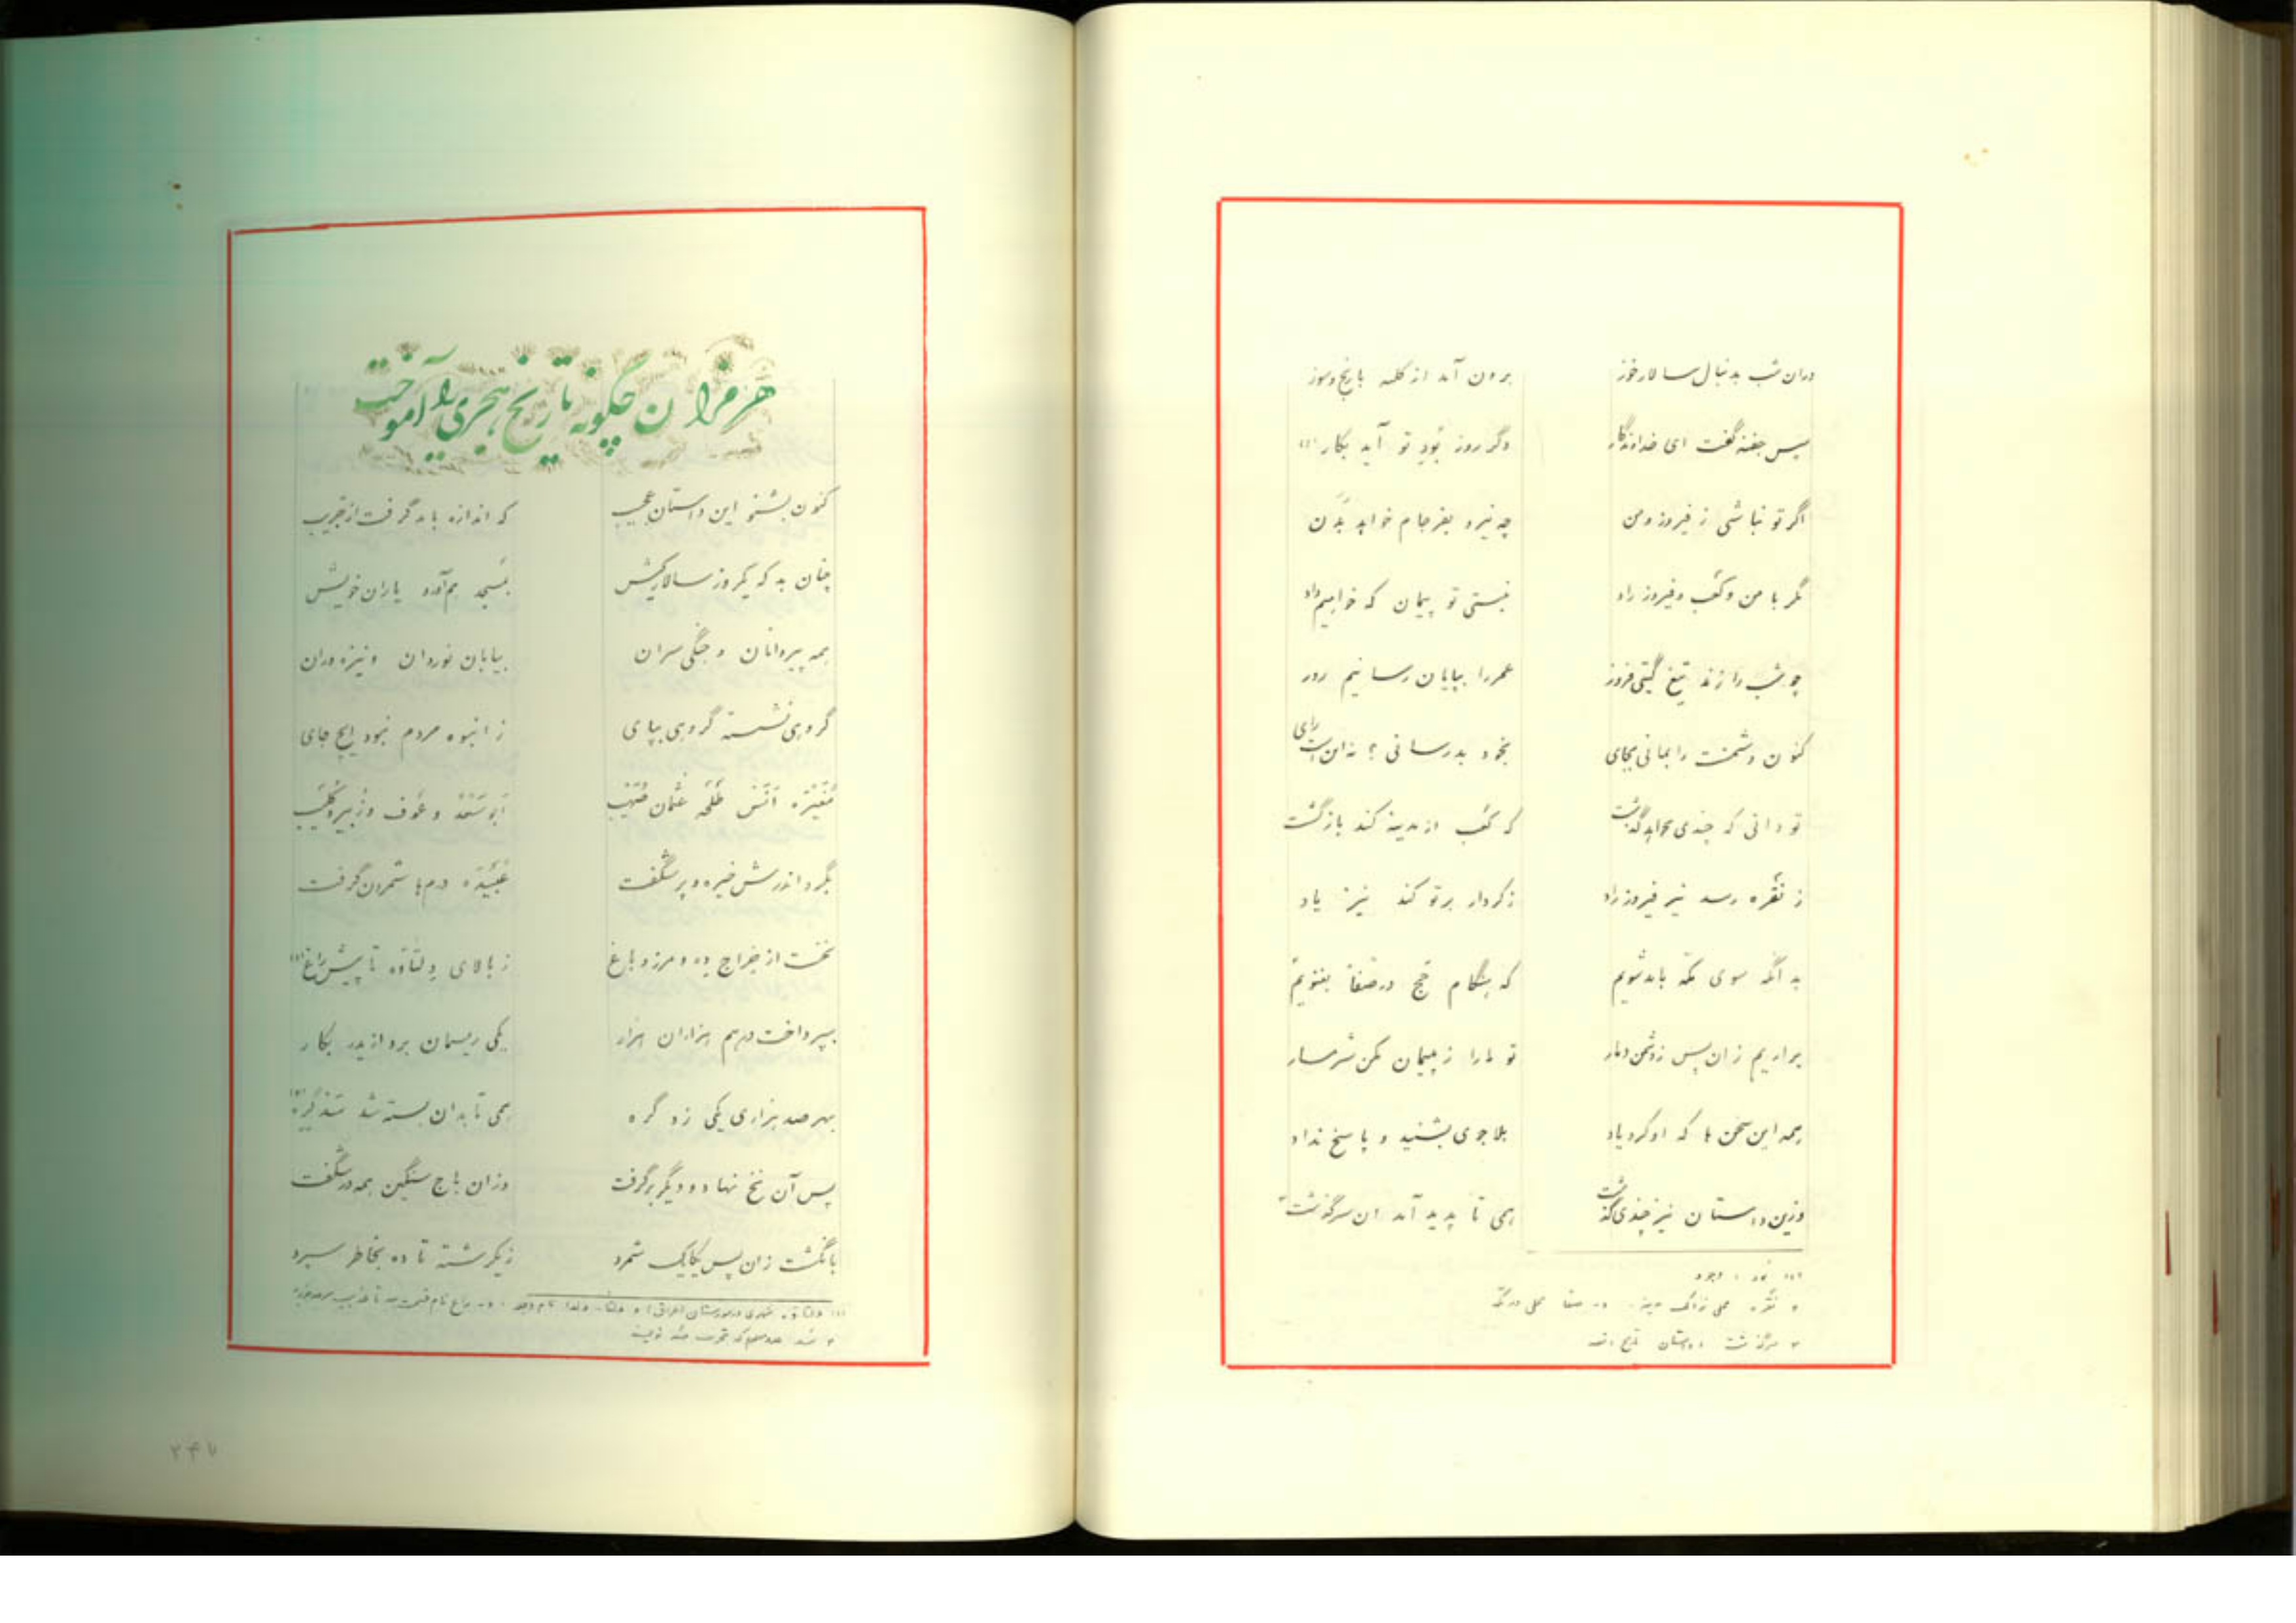 دران شب بدنبال سالار خوز برون آمد از کلبه با رنج و سوز
سپس جفنه گفت ای خداوندگار دگر روز بود تو آید بکار (۱)
اگر تو نباشی ز فیروز و من چه نیرو بفرجام خواهد بدن
مگر با من و کعب و فیروز راد نبستی تو پیمان که خواهیم داد
چو شب را زند تیغ گیتی فروز عمر را بپایان رسانیم روز
کنون دشمنت را بمانی بجای بخود بد رسانی؟ نه این است رای
تو دانی که چندی نخواهد گذشت که کعب از مدینه کند بازگشت
ز نقره رسد نیز فیروز راد ز کردار بر تو کند نیز یاد
بد آنگه سوی مکه باید شویم که هنگام حج در صفا بغنویم
برآریم زان پس ز دشمن دمار تو ما را ز پیمان مکن شرمسار
همه این سخن ها که او کرد یاد بلاجوی بشنید و پاسخ نداد
وزین داستان نیز چندی گذشت همی تا پدید آمد آن سرگذشت
(۱) بود : وجود
۲ نقره محلی نزدیک مدینه . و . صفا محلی در مکه
۳ سرگذشت : داستان تاریخ
هرمزان چگونه تاریخ هجری را آموخت
کنون بشنو این داستان عجیب که اندازه باید گرفت از جریب
چنان بد که یکروز سالار کیش بمسجد هم آورد یاران خویش
همه پیروانان و جنگی سران بیابان نوردان و نیزه وران
گروهی نشسته گروهی بپای ز انبوه مردم نبود ایچ جای
مغیره انس طلحه عثمان صهیب ابو سعد و عوف و زبیر و کلیب
بگرد اندرش خیره و پر شگفت عبیده درم ها شمردن گرفت
نخست از خراج ده و مرز و باغ ز بالای ولتاوه تا پیش راغ (۱)
بپرداخت درهم هزاران هزار یکی ریسمان برد از بدر بکار
بهر صد هزاری یکی زد گره همی تا بدان بسته شد شد گره (۲)
پس آن نخ نهاد و دیگر برگرفت وزان باج سنگین همه در شگفت
بانگشت زان پس یکایک شمرد ز یکرشته تا ده بخاطر سپرد